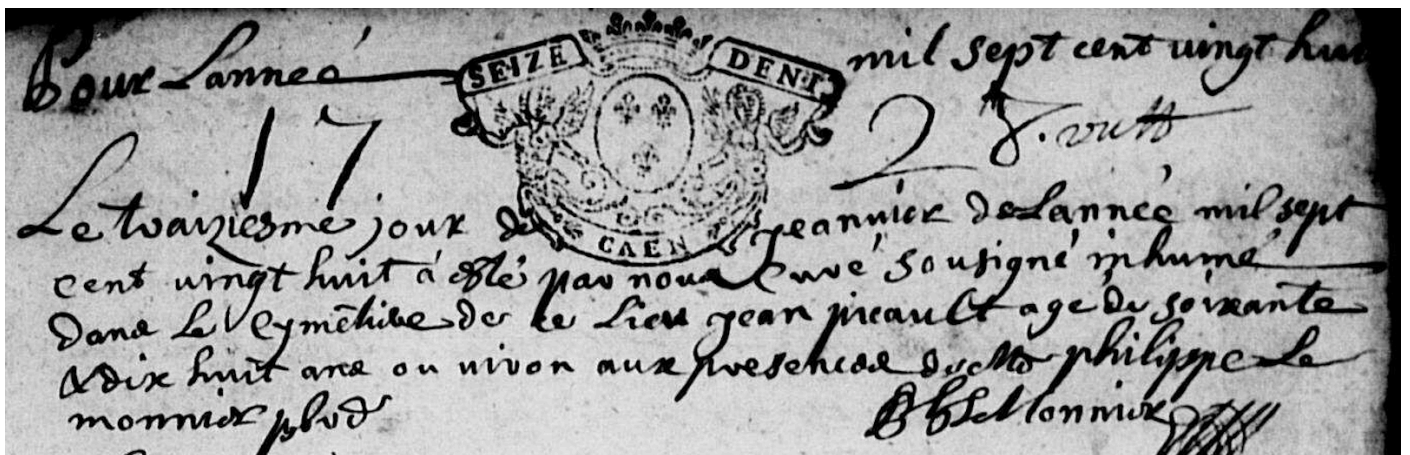 Pour Lanneé mil sept cent vingt huit
SEIZE DENI
17 28
CAEN
Le traiziesme jour de jeanvier de Lanneé mil sept
cent vingt huit á esté par nous Curé sousigné inhumé
dans le Cymetiere de ce Lieu jean picault agé de soixante
& dix huit ans ou viron aux presences de Mr philippe Le
monnier pbre
Ph Le Monnier